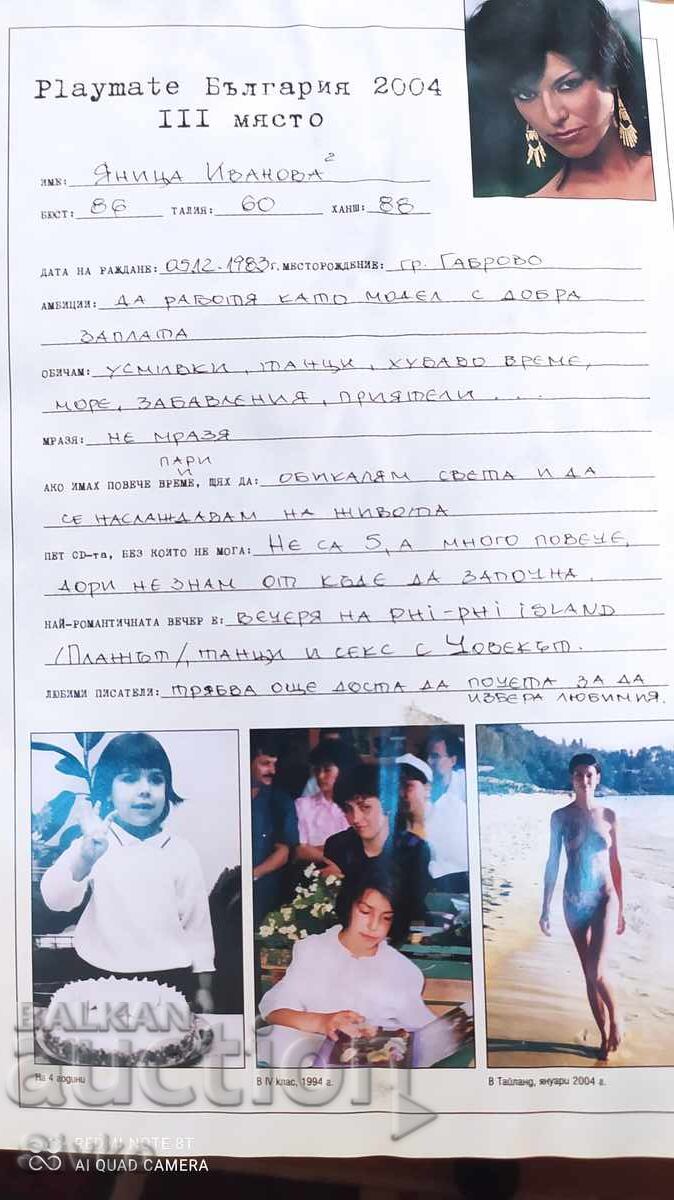 Playmate България 2004
III място
ИМЕ: ЯНИЦА ИВАНОВА 2
БЮСТ: 86 ТАЛИЯ: 60 ХАНШ: 88
ДАТА НА РАЖДАНЕ: 05.12.1983г. МЕСТОРОЖДЕНИЕ: ГР. ГАБРОВО
АМБИЦИИ: ДА РАБОТЯ КАТО МОДЕЛ С ДОБРА
ЗАПЛАТА
ОБИЧАМ: УСМИВКИ, ТАНЦИ, ХУБАВО ВРЕМЕ,
МОРЕ, ЗАБАВЛЕНИЯ, ПРИЯТЕЛИ ...
МРАЗЯ: НЕ МРАЗЯ
ПАРИ
И
АКО ИМАХ ПОВЕЧЕ ВРЕМЕ, ЩЯХ ДА: ОБИКАЛЯМ СВЕТА И ДА
СЕ НАСЛАЖДАВАМ НА ЖИВОТА
ПЕТ CD-та, БЕЗ КОИТО НЕ МОГА: НЕ СА 5, А МНОГО ПОВЕЧЕ,
ДОРИ НЕ ЗНАМ ОТ КЪДЕ ДА ЗАПОЧНА.
НАЙ-РОМАНТИЧНАТА ВЕЧЕР Е: ВЕЧЕРЯ НА PHi-PHi iSLAND
/ПЛАЖЪТ/, ТАНЦИ И СЕКС С ЧОВЕКЪТ.
ЛЮБИМИ ПИСАТЕЛИ: ТРЯБВА ОЩЕ ДОСТА ДА ПОЧЕТА ЗА ДА
ИЗБЕРА ЛЮБИМИЯ.
На 4 години
В IV клас, 1994 г.
В Тайланд, януари 2004 г.
BALKAN
auction
REDMI NOTE 8T
AI QUAD CAMERA